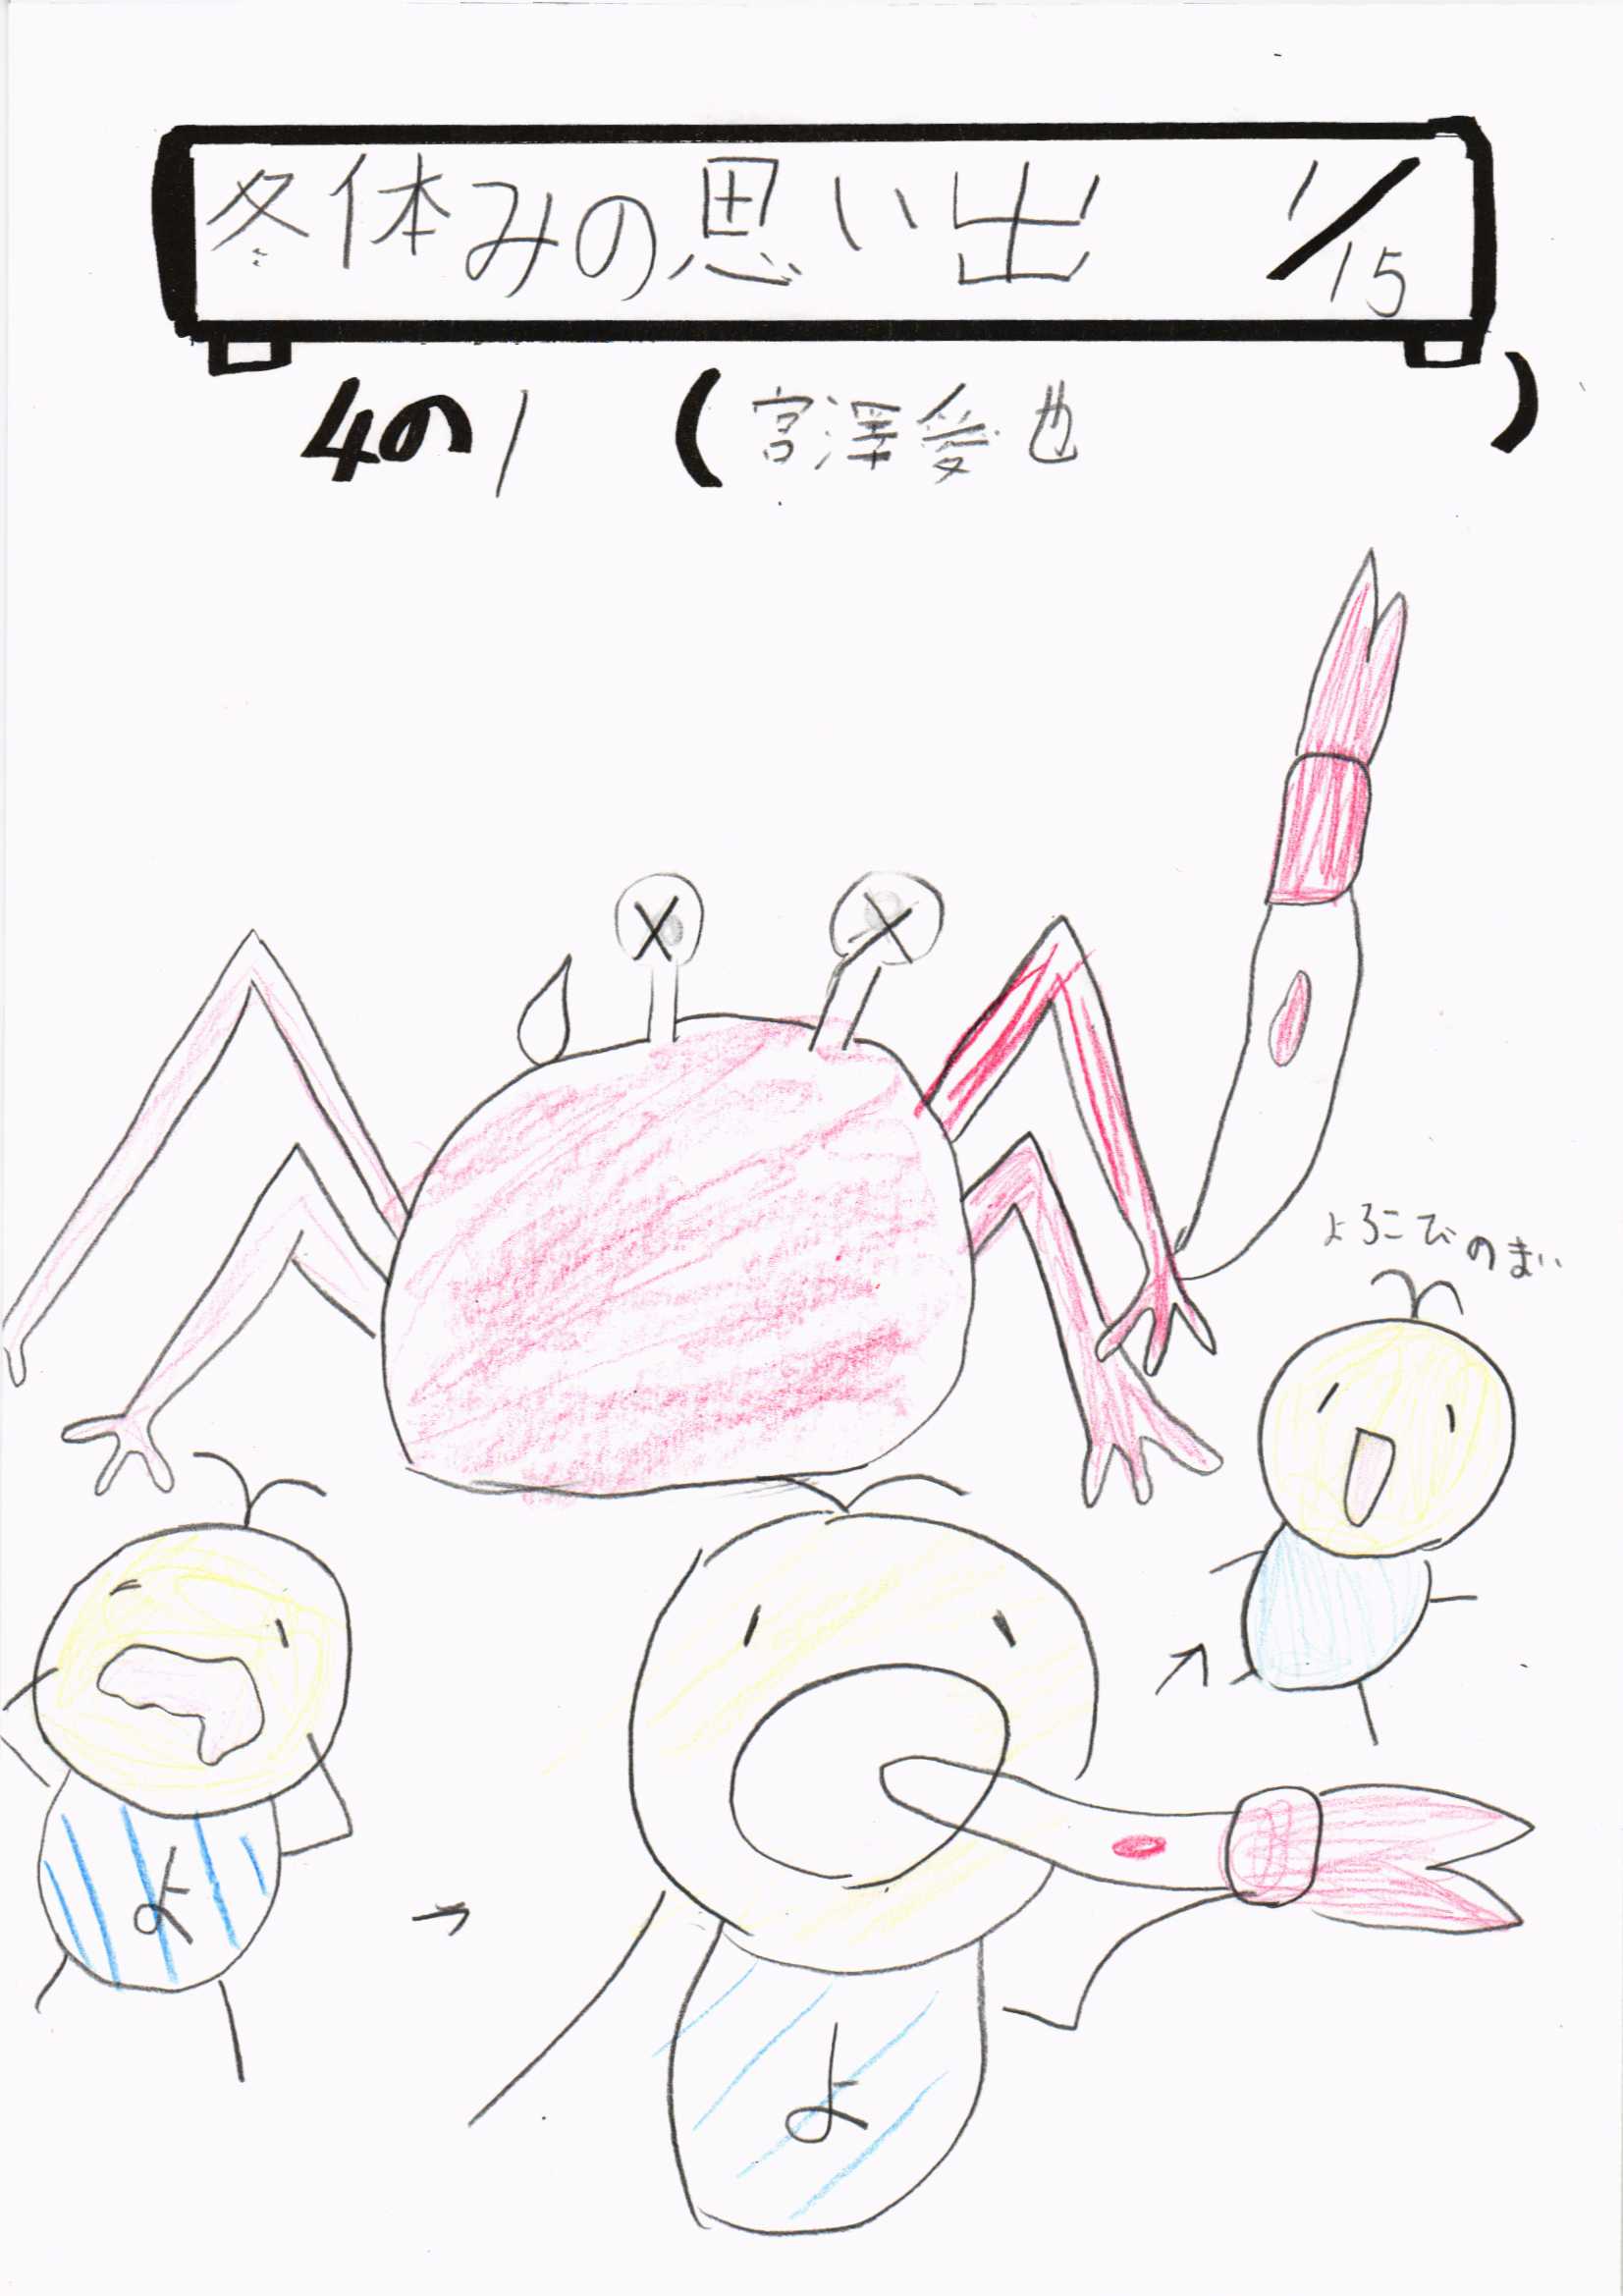 冬休みの思い出 1/15
4の1 (宮澤愛也)
よろこびのまい
よ
よ